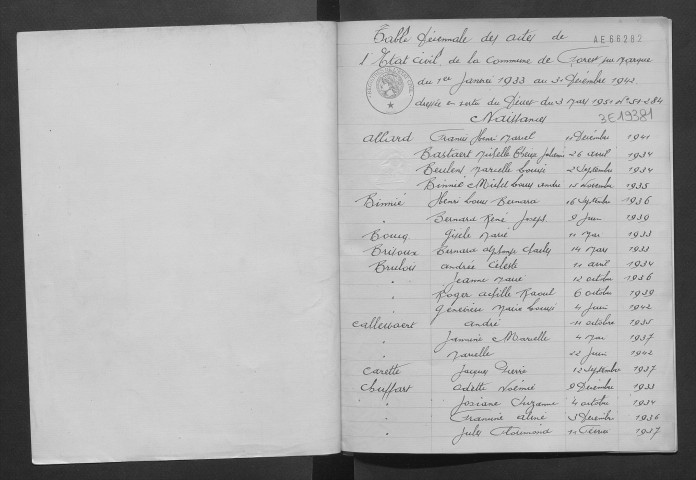 Table décennale des actes de
AE66282
l'Etat civil de la Commune de Forest sur Marque
du 1er Janvier 1933 au 31 Décembre 1942
dressée en vertu du Décret du 3 Mars 1951 N° 51-284
Naissances
3E19381
Alliard Francis Henri Marcel Décembre 1941
Bastaert Michelle 26 avril 1934
Beulens Marcelle Louise 2 Septembre 1934
Binnié Michel Louis André 15 Novembre 1935
Binnié Henri Louis Bernard 16 Septembre 1936
" Bernard René Joseph 9 Juin 1939
Bourg Gisèle Marie 11 Mai 1933
Brisoux Bernard Alphonse Charles 14 Mars 1933
Brulois Andrée Céleste 11 avril 1934
" Jeanne Marie 12 octobre 1936
" Roger Achille Raoul 6 octobre 1939
" Geneviève Marie Louise 4 Juin 1942
Callewaert André 11 octobre 1935
" Jeannine Marcelle 4 Mai 1937
" Marcelle 22 Juin 1942
Carette Jacques Pierre 12 Septembre 1937
Chuffart Odette Noémie 9 Décembre 1933
" Josiane Suzanne 4 octobre 1934
" Francine Aline 3 Décembre 1936
" Jules Florimond 11 Février 1937